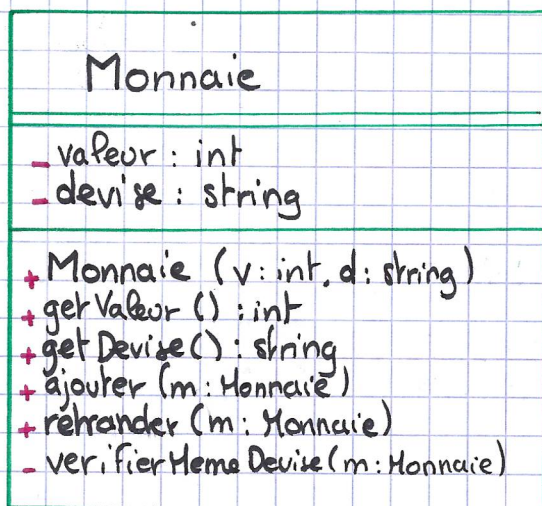 Monnaie
- valeur : int
- devise : string
+ Monnaie (v : int, d : string)
+ getValeur () : int
+ getDevise() : string
+ ajouter (m : Monnaie)
+ retrancher (m : Monnaie)
- verifierMemeDevise(m : Monnaie)